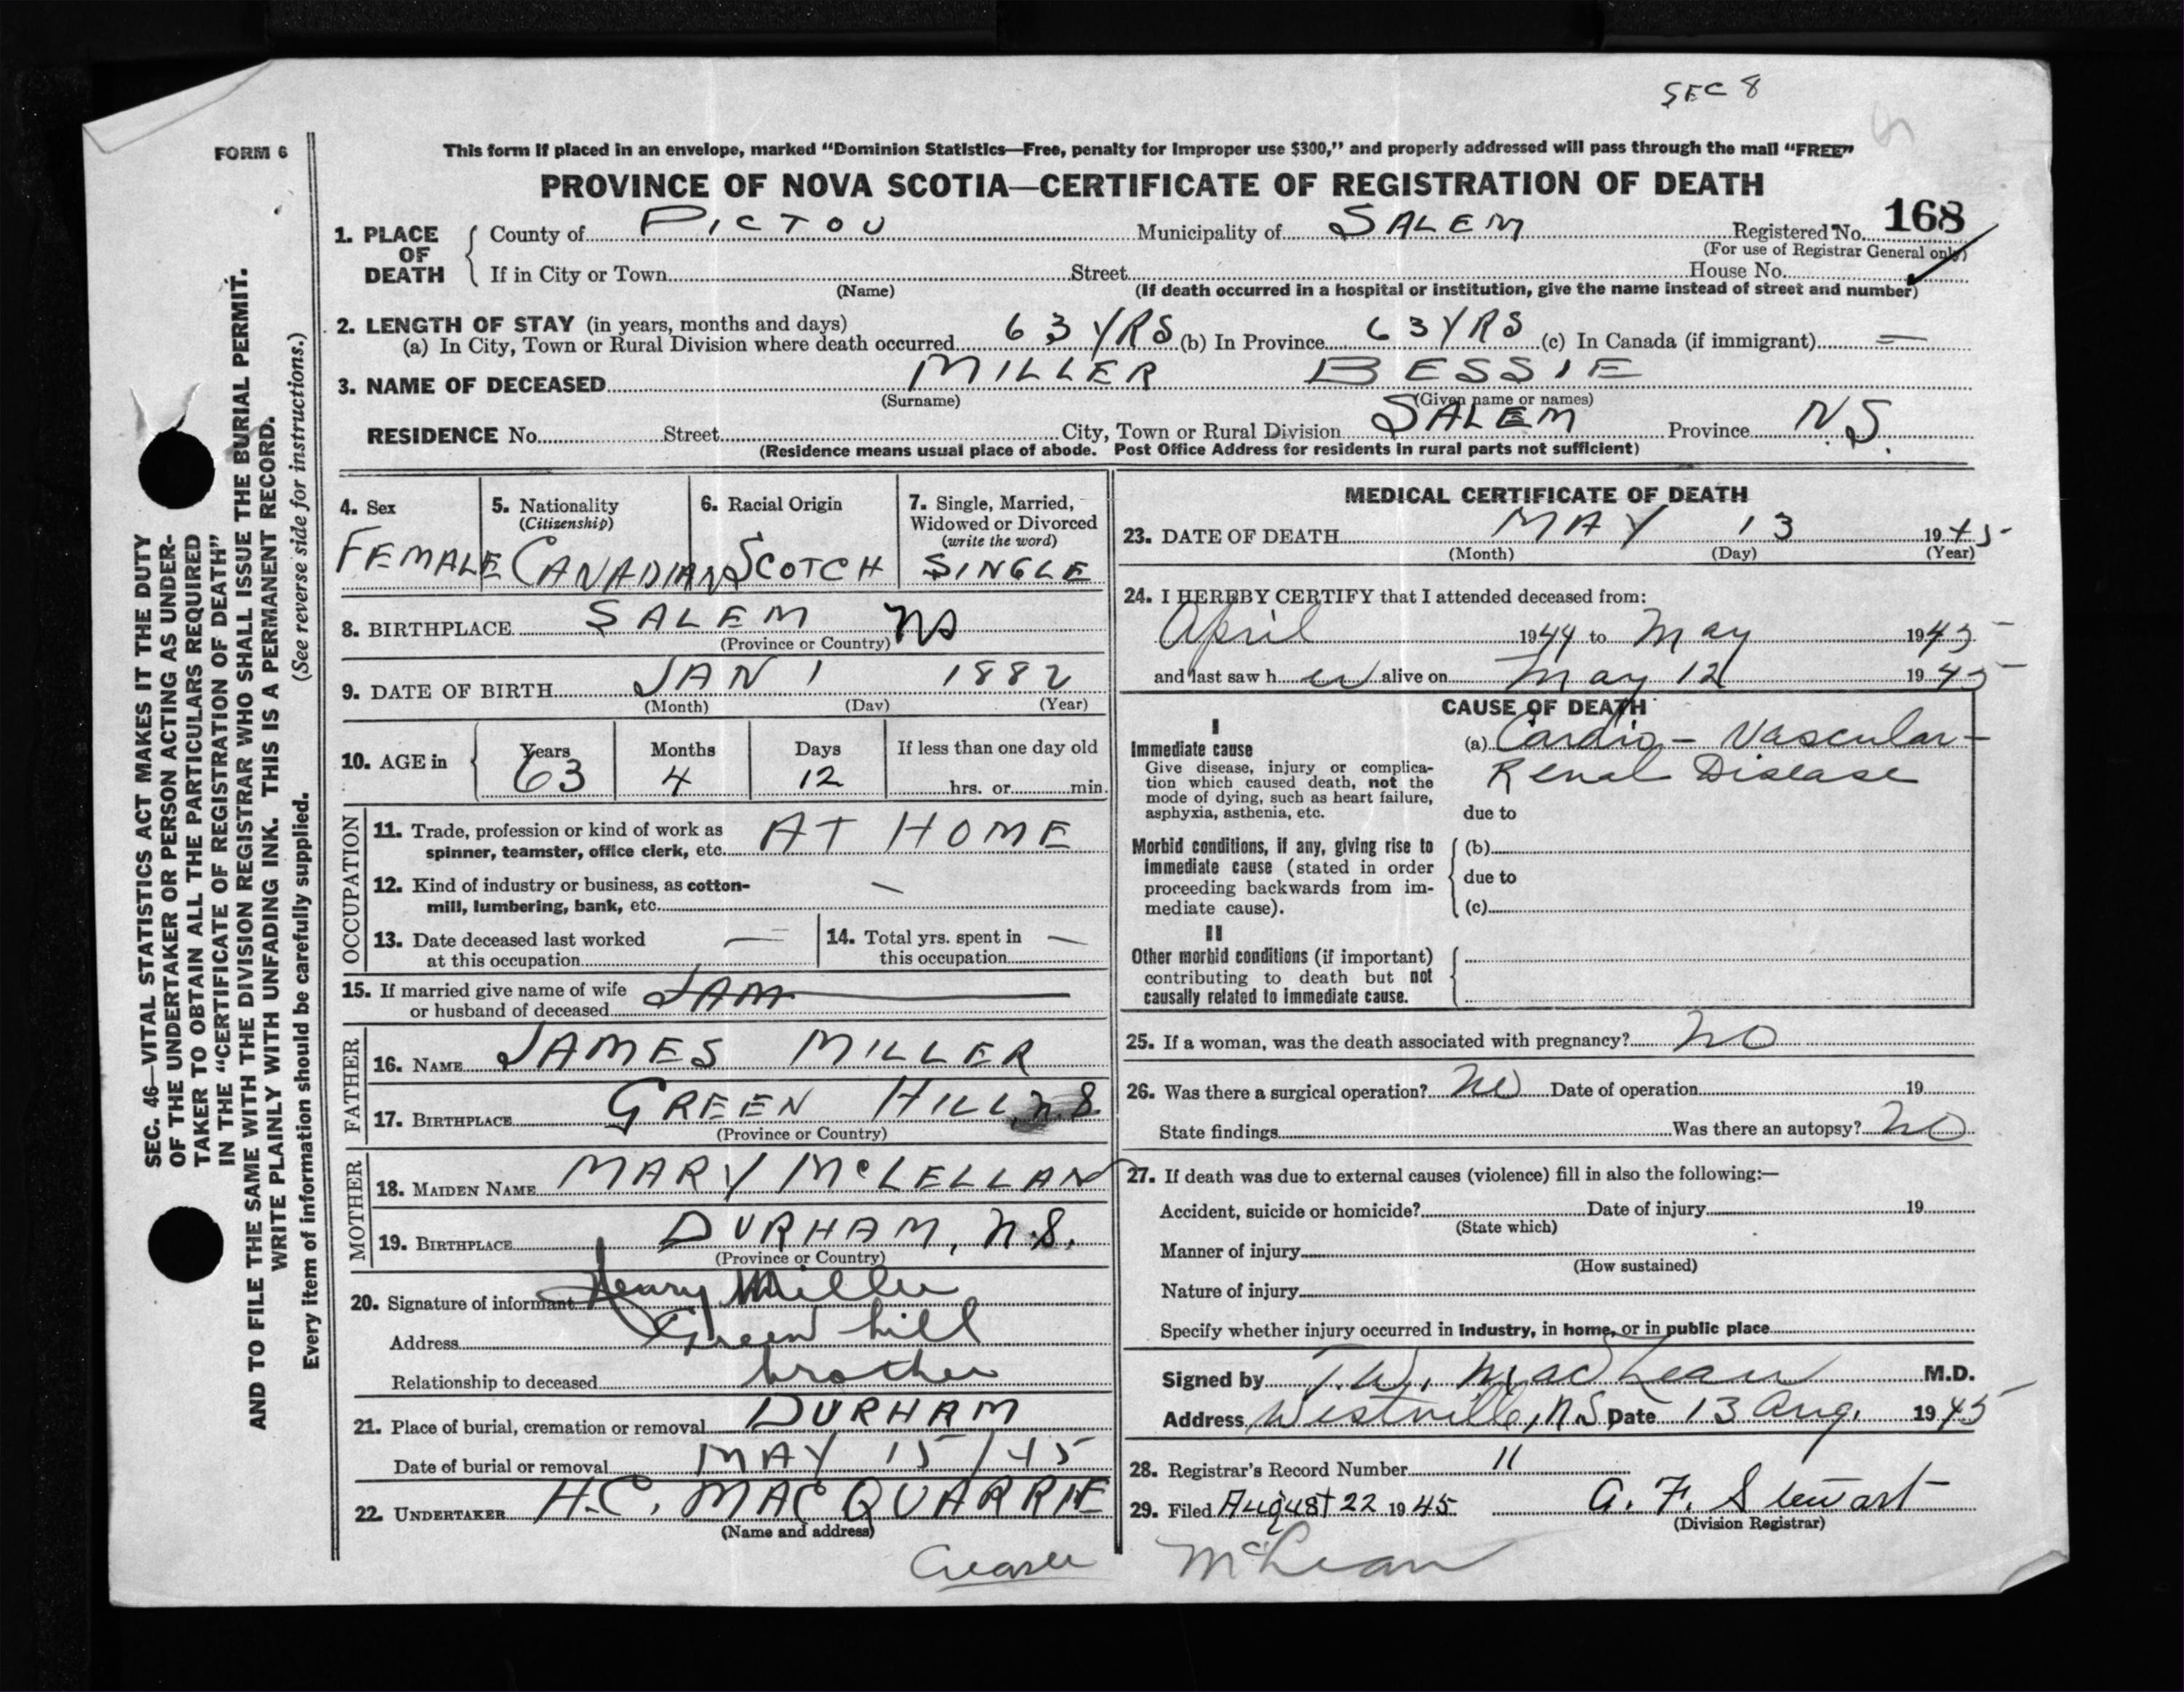 SEC 8
FORM 6
This form if placed in an envelope, marked "Dominion Statistics—Free, penalty for improper use $300," and properly addressed will pass through the mail "FREE"
PROVINCE OF NOVA SCOTIA—CERTIFICATE OF REGISTRATION OF DEATH
1. PLACE OF DEATH
County of PICTOU Municipality of SALEM Registered No. 168
(For use of Registrar General only)
If in City or Town Street House No.
(Name) (If death occurred in a hospital or institution, give the name instead of street and number)
2. LENGTH OF STAY (in years, months and days)
(a) In City, Town or Rural Division where death occurred 63 YRS (b) In Province 63 YRS (c) In Canada (if immigrant) —
3. NAME OF DECEASED MILLER BESSIE
(Surname) (Given name or names)
RESIDENCE No. Street City, Town or Rural Division SALEM Province N.S.
(Residence means usual place of abode. Post Office Address for residents in rural parts not sufficient)
SEC. 46—VITAL STATISTICS ACT MAKES IT THE DUTY
OF THE UNDERTAKER OR PERSON ACTING AS UNDER-
TAKER TO OBTAIN ALL THE PARTICULARS REQUIRED
IN THE "CERTIFICATE OF REGISTRATION OF DEATH"
AND TO FILE THE SAME WITH THE DIVISION REGISTRAR WHO SHALL ISSUE THE BURIAL PERMIT.
WRITE PLAINLY WITH UNFADING INK. THIS IS A PERMANENT RECORD.
Every item of information should be carefully supplied. (See reverse side for instructions.)
4. Sex
FEMALE
5. Nationality
(Citizenship)
CANADIAN
6. Racial Origin
SCOTCH
7. Single, Married,
Widowed or Divorced
(write the word)
SINGLE
8. BIRTHPLACE SALEM NS
(Province or Country)
9. DATE OF BIRTH JAN 1 1882
(Month) (Day) (Year)
10. AGE in
Years Months Days If less than one day old
63 4 12 hrs. or min.
OCCUPATION
11. Trade, profession or kind of work as
spinner, teamster, office clerk, etc. AT HOME
12. Kind of industry or business, as cotton-
mill, lumbering, bank, etc. —
13. Date deceased last worked
at this occupation —
14. Total yrs. spent in
this occupation —
15. If married give name of wife
or husband of deceased JAM
FATHER
16. NAME JAMES MILLER
17. BIRTHPLACE GREEN HILL N.S.
(Province or Country)
MOTHER
18. MAIDEN NAME MARY McLELLAN
19. BIRTHPLACE DURHAM, N.S.
(Province or Country)
20. Signature of informant Henry Miller
Address Green hill
Relationship to deceased brother
21. Place of burial, cremation or removal DURHAM
Date of burial or removal MAY 15/45
22. UNDERTAKER H.C. MACQUARRIE
(Name and address)
MEDICAL CERTIFICATE OF DEATH
23. DATE OF DEATH MAY 13 1945
(Month) (Day) (Year)
24. I HEREBY CERTIFY that I attended deceased from:
April 1944 to May 1945
and last saw her alive on May 12 1945
CAUSE OF DEATH
I
Immediate cause
Give disease, injury or complica-
tion which caused death, not the
mode of dying, such as heart failure,
asphyxia, asthenia, etc.
(a) Cardio-Vascular-
Renal Disease
due to
Morbid conditions, if any, giving rise to
immediate cause (stated in order
proceeding backwards from im-
mediate cause).
(b)
due to
(c)
II
Other morbid conditions (if important)
contributing to death but not
causally related to immediate cause.
25. If a woman, was the death associated with pregnancy? No
26. Was there a surgical operation? No Date of operation 19
State findings Was there an autopsy? No
27. If death was due to external causes (violence) fill in also the following:—
Accident, suicide or homicide? Date of injury 19
(State which)
Manner of injury
(How sustained)
Nature of injury
Specify whether injury occurred in industry, in home, or in public place
Signed by T.W. MacLean M.D.
Address Westville, N.S. Date 13 Aug. 1945
28. Registrar's Record Number 11
29. Filed August 22 1945 A. F. Stewart
(Division Registrar)
McLean